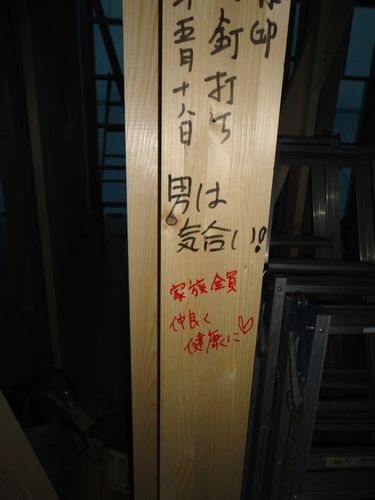 印
釘打ち
年五月十八日
男は
気合い!!
家族全員
仲良く
健康に♡